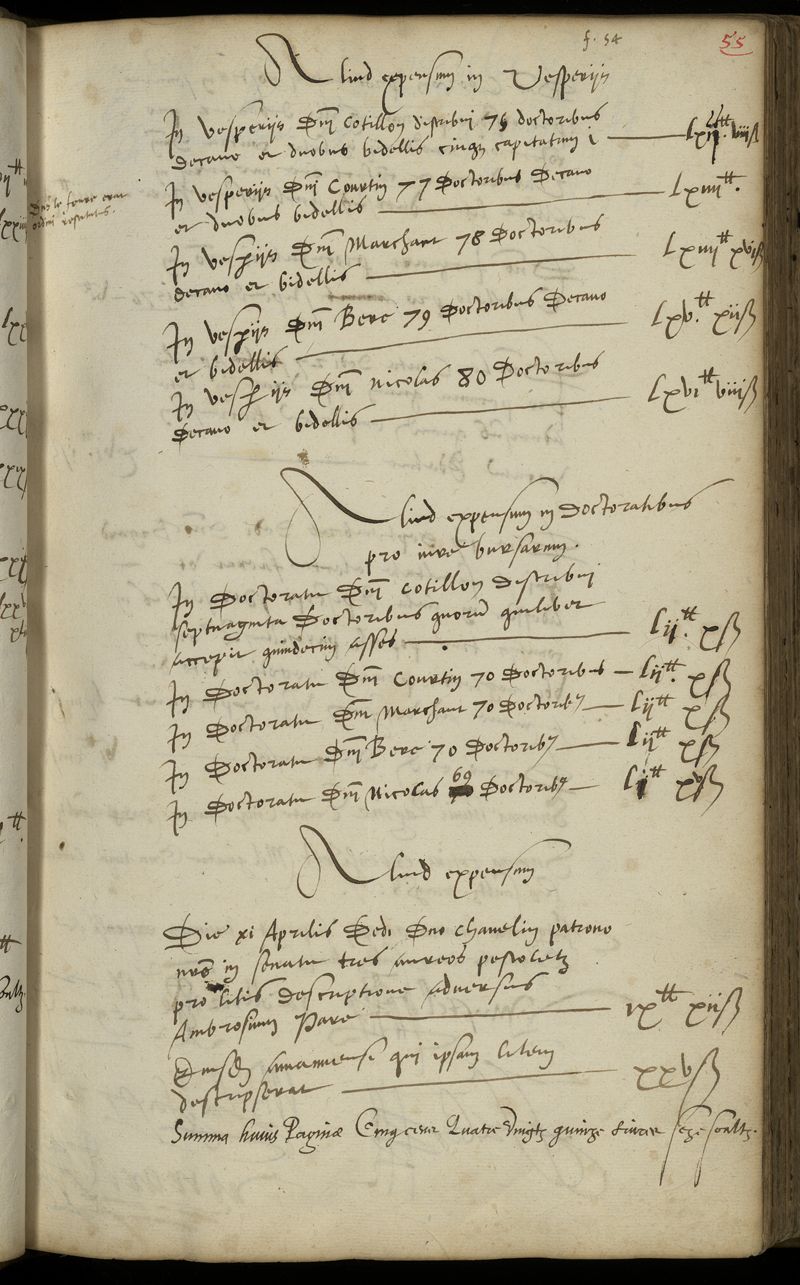 f. 54
55
Aliud expensum in Vesperiis
In vesperiis Dni Cotillon distribui 76 doctoribus
decano et duobus bidellis cuiq3 capitatim i
In vesperiis Dni Courtin 77 Doctoribus Decano
et duobus bidellis lxiiii tt.
Dns le feure erat
In vesperiis Dni Marchant 78 Doctoribus
decano et bidellis lxiiii tt xvi ß
In vesperiis Dni Bere 79 Doctoribus Decano
et bidellis lxv. tt xii ß
In vesperiis Dni Nicolas 80 Doctoribus
Decano et bidellis lxvi tt viii ß
Aliud expensum in doctoratibus
pro iure bursarum.
In Doctoratu Dni Cotillon distribui
septuaginta Doctoribus quorum quilibet
accepit quindecim asses lii. tt x ß
In Doctoratu Dni Courtin 70 Doctoribus lii tt. x ß
In Doctoratu Dni Marchant 70 Doctorib9 lii tt x ß
In Doctoratu Dni Bere 70 Doctorib9 lii tt x ß
In Doctoratu Dni Nicolas 69 Doctorib9
Aliud expensum
Die xi Aprilis Dedi Dno Chauelin patrono
nro in senatu tres aureos pistoletz
pro litis descriptione adversus
Ambrosium Pare ix tt xii ß
Eiusdem amanuensi qui ipsam litem
descripserat xxv ß
Summa huius Paginæ Cinq cens Quatre Vingtz quinze Livres seze soultz.